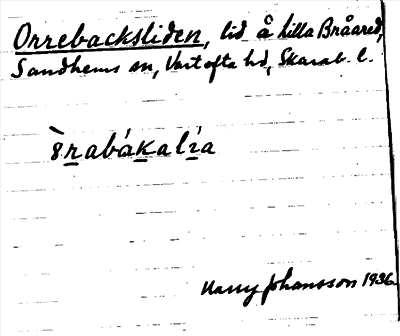 Orrebacksliden, lid å Lilla Bråared,
Sandhems sn, Vartofta hd, Skarab. l.
Harry Johansson 1936